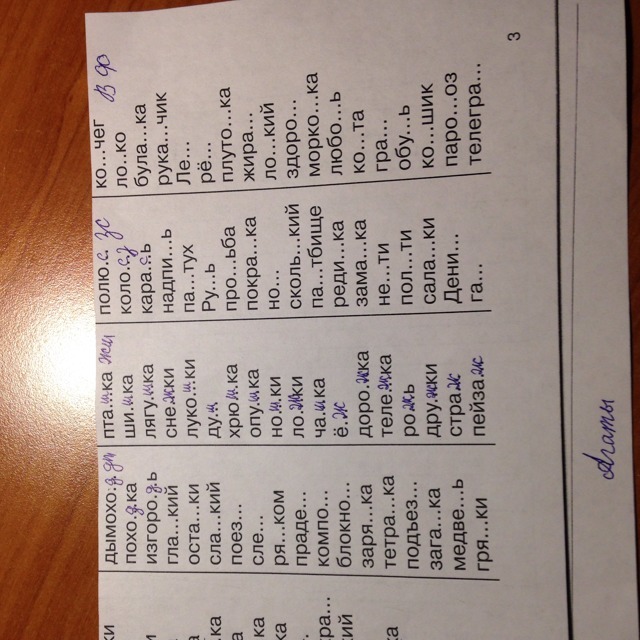 дымохо.д. дт
похо.д.ка
изгоро.д.ь
гла...кий
оста...ки
сла...кий
поез...
сле...
ря...ком
праде...
компо...
блокно...
заря...ка
тетра...ка
подъез...
зага...ка
медве...ь
гря...ки
пта.ш.ка жш
ши.ш.ка
лягу.ш.ка
сне.ж.ки
луко.ш.ки
ду.ш
хрю.ш.ка
опу.ш.ка
но.ш.ки
ло.ж.ки
ча.ш.ка
ё.ж
доро.ж.ка
теле.ж.ка
ро.ж.ь
дру.ж.ки
стра.ж
пейза.ж
полю.с. зс
коло.
кара.с.ь
надпи...ь
па...тух
Ру...ь
про...ьба
покра...ка
но...
сколь...кий
па...тбище
реди...ка
зама...ка
не...ти
пол...ти
сала...ки
Дени...
га...
ко...чег В ф
ло...ко
була...ка
рука...чик
Ле...
рё...
плуто...ка
жира...
ло...кий
здоро...
морко...ка
любо...ь
ко...та
гра...
обу...ь
ко...шик
паро...оз
телегра...
3
Агаты